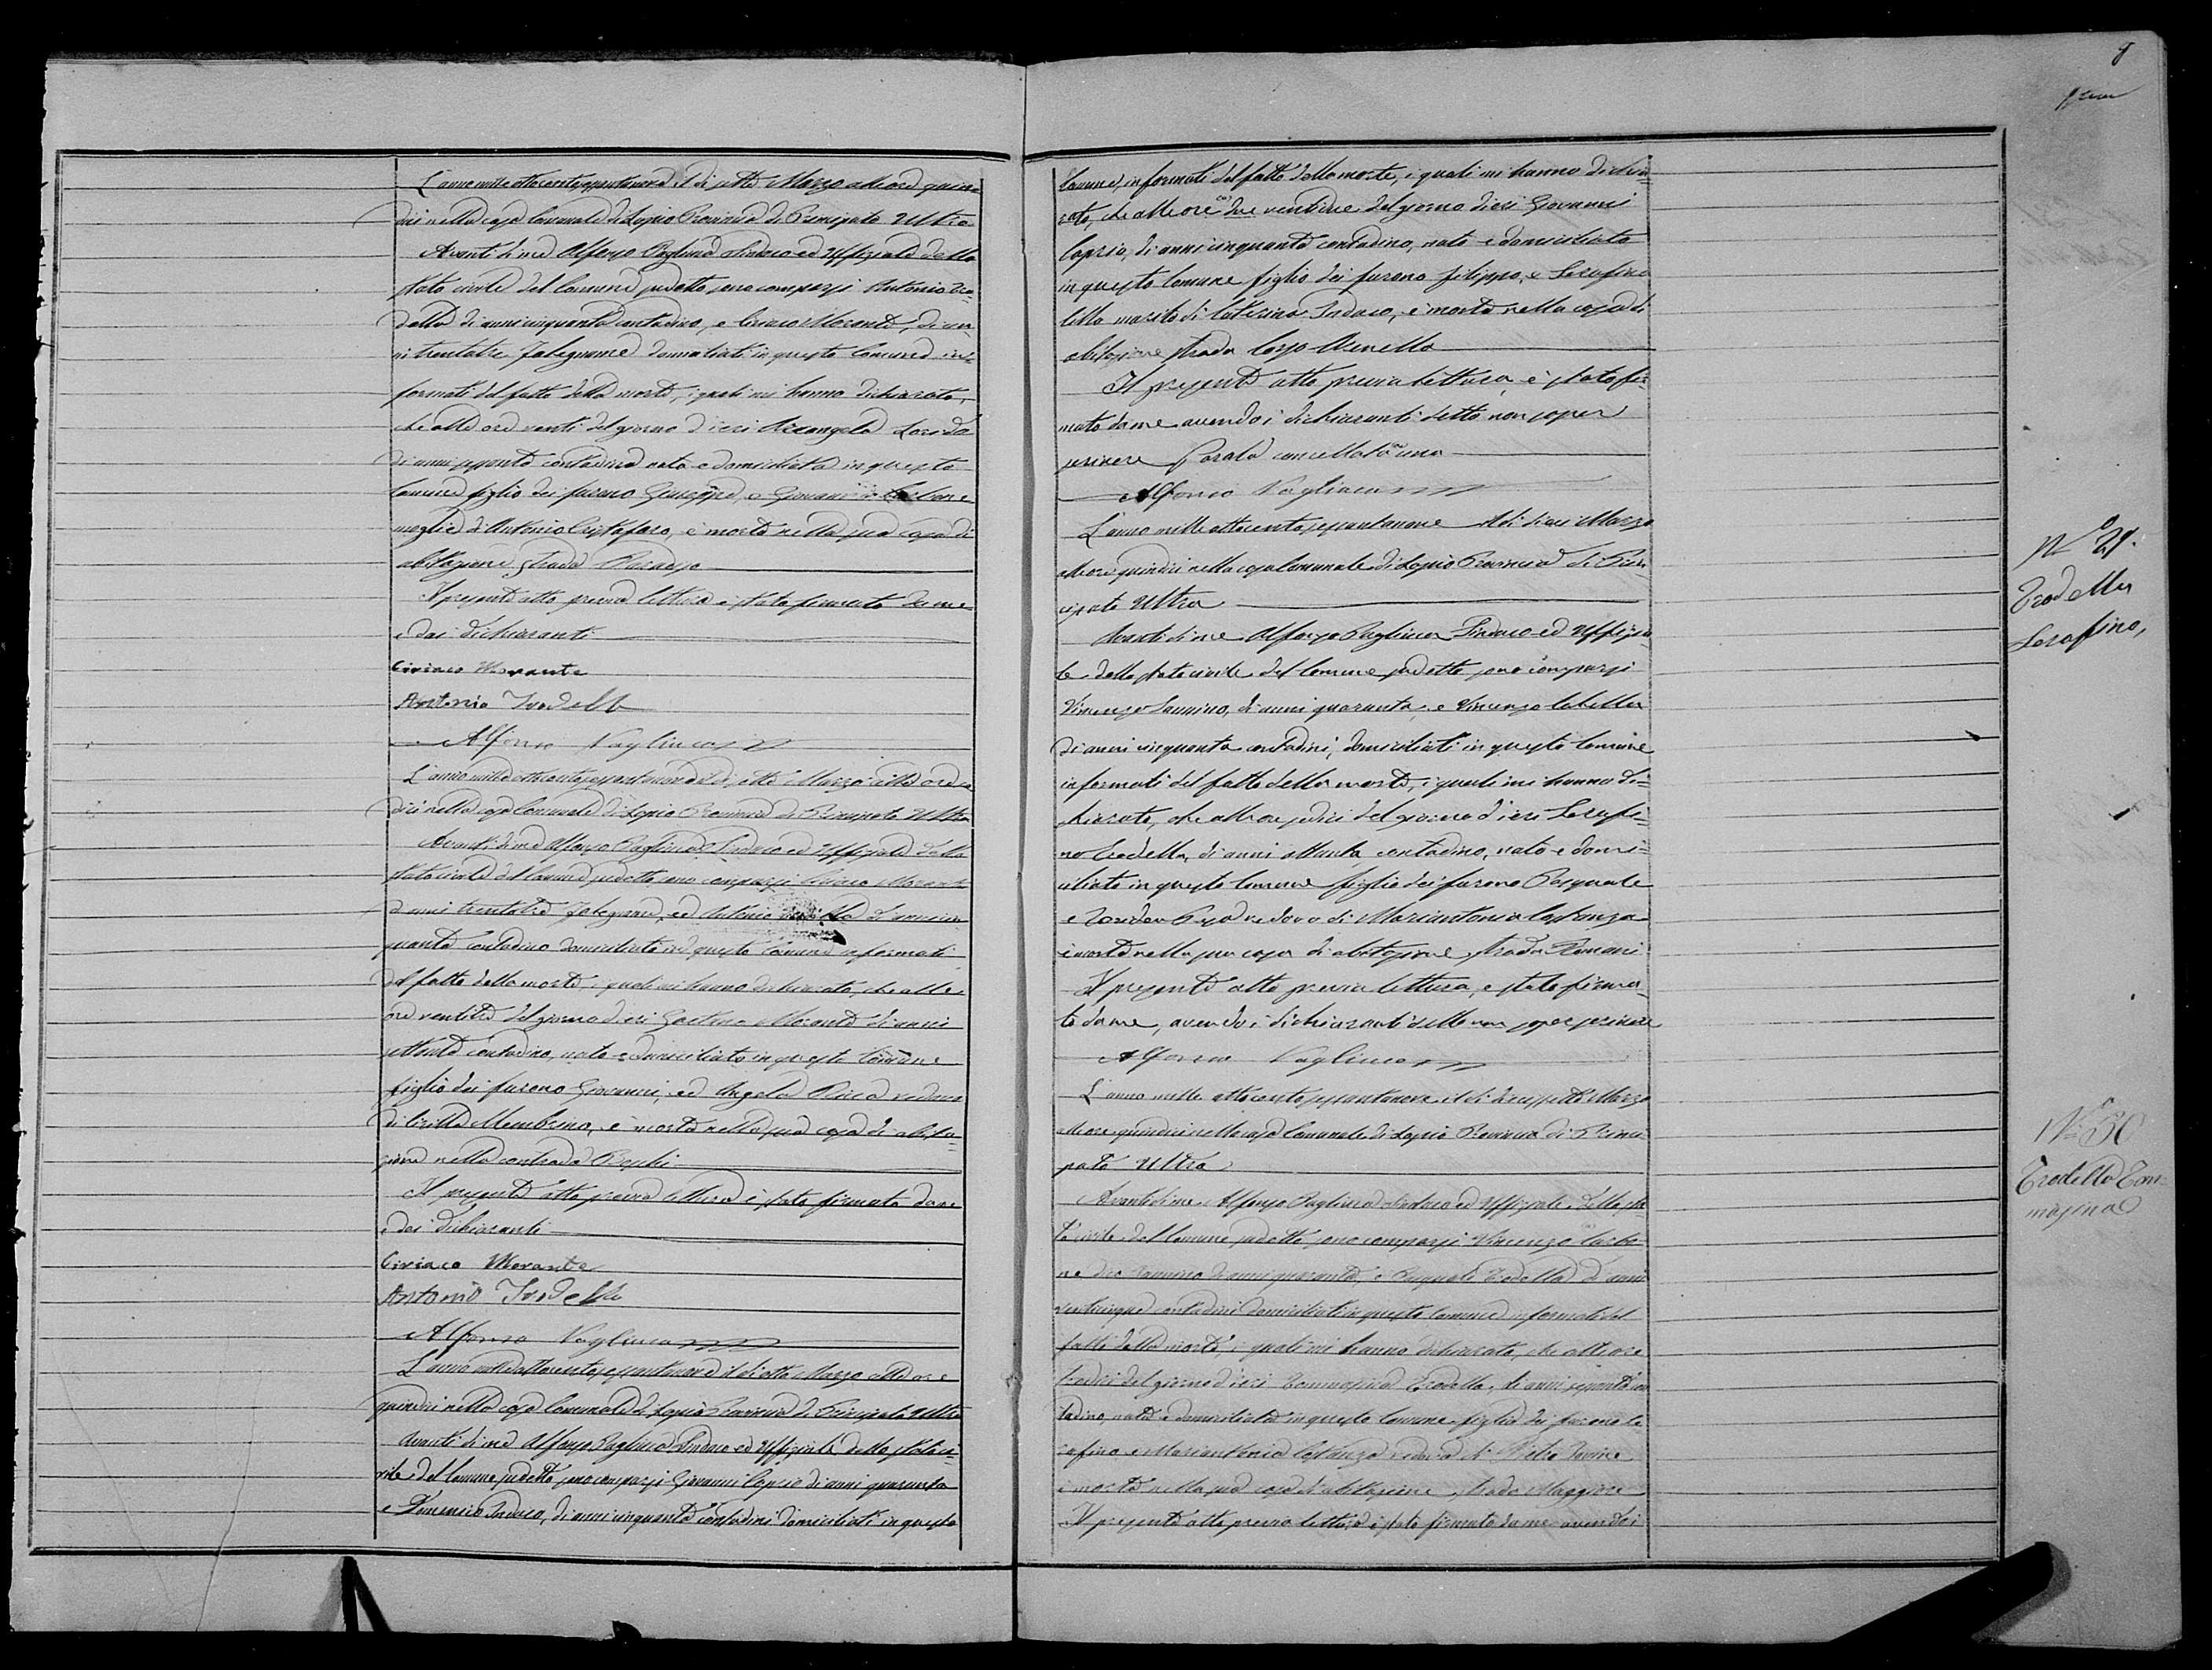 L'anno mille ottocentosessantanove il dì sette Marzo alle ore quin=
dici nella casa Comunale di Lapio Provincia di Principato Ultra
Avanti di me Alfonso Pagliuca Sindaco ed Uffiziale dello
stato civile del Comune sudetto sono comparsi Antonio Tro=
della di anni cinquanta contadino, e Ciriaco Morante, di an=
ni trentatre falegname domiciliati in questo Comune in=
formati del fatto della morte, i quali mi hanno dichiarato,
che alle ore venti del giorno d'ieri Arcangela
di anni sessanta contadina nata e domiciliata in questo
Comune figlia dei furono Giuseppe, e Giovanna Carbone
moglie di Antonio Cristofaro, è morta nella sua casa di
abitazione strada
Il presente atto previa lettura è stato firmato da me
e dai dichiaranti
Ciriaco Morante
Antonio Trodella
Alfonso Pagliuca
L'anno mille ottocentosessantanove il dì otto Marzo alle ore
dici nella casa Comunale di Lapio Provincia di Principato Ultra
Avanti di me Alfonso Pagliuca Sindaco ed Uffiziale dello
stato civile del Comune sudetto sono comparsi Ciriaco Morante
d'anni trentatre falegname, ed Antonio Trodella d'anni cin
quanta contadino domiciliati in questo Comune informati
del fatto della morte, i quali mi hanno dichiarato, che alle
ore ventitre del giorno d'ieri Gaetano Morante di anni
settanta contadino, nato e domiciliato in questo Comune
figlio dei furono Giovanni, ed Angela vedovo
di Membrino, è morto nella sua casa di abita=
zione nella contrada
Il presente atto previa lettura è stato firmato da me
e dai dichiaranti
Ciriaco Morante
Antonio Trodella
Alfonso Pagliuca
L'anno mille ottocentosessantanove il dì otto Marzo alle ore
quindici nella casa Comunale di Lapio Provincia di Principato Ultra
Avanti di me Alfonso Pagliuca Sindaco ed Uffiziale dello stato ci=
vile del Comune sudetto sono comparsi Giovanni Caprio di anni quaranta
e Domenico Indaco, di anni cinquanta contadini domiciliati in questo
Comune, informati del fatto della morte, i quali mi hanno dichia=
rato, che alle ore due ventidue del giorno d'ieri Giovanni
Caprio, di anni cinquanta contadino, nato e domiciliato
in questo Comune figlio dei furono Filippo, e Serafina
marito di Caterina Indaco, è morto nella casa di
abitazione strada Corso
Il presente atto previa lettura, è stato fir=
mato da me avendo i dichiaranti detto non saper
scrivere Parola cancellata una
Alfonso Pagliuca
L'anno mille ottocentosessantanove il dì dieci Marzo
alle ore quindici nella casa Comunale di Lapio Provincia di Prin
cipato Ultra
Avanti di me Alfonso Pagliuca Sindaco ed Uffizia
le dello stato civile del Comune sudetto sono comparsi
Vincenzo Iannino, di anni quaranta, e Vincenzo
di anni cinquanta contadini, domiciliati in questo Comune
informati del fatto della morte, i quali mi hanno di=
chiarato, che alle ore sedici del giorno d'ieri Serafi=
no Trodella, di anni ottanta, contadino, nato e domi=
ciliato in questo Comune figlio dei furono Pasquale
e vedovo di Mariantonia Costanza
è morto nella sua casa di abitazione strada
Il presente atto previa lettura, è stato firma=
to da me, avendo i dichiaranti detto non saper scrivere
Alfonso Pagliuca
L'anno mille ottocentosessantanove il dì diecissette Marzo
alle ore quindici nella casa Comunale di Lapio Provincia di Princi
pato Ultra
Avanti di me Alfonso Pagliuca Sindaco ed Uffiziale dello sta=
to civile del Comune sudetto sono comparsi Vincenzo Carbo=
ne di anni quaranta, e Pasquale Trodella d'anni
venticinque contadini domiciliati in questo Comune informati del
fatto della morte, i quali mi hanno dichiarato, che alle ore
tredici del giorno d'ieri Tommasina Trodella, di anni sessanta con
tadina, nata e domiciliata in questo Comune figlia dei furono Se
rafino e Mariantonia Costanza vedova di
è morta nella sua casa d'abitazione, strada Maggiore
Il presente atto previa lettura è stato firmato da me avendo i
N° 29.
Trodella
Serafino,
N° 30
Trodella Tom=
masina